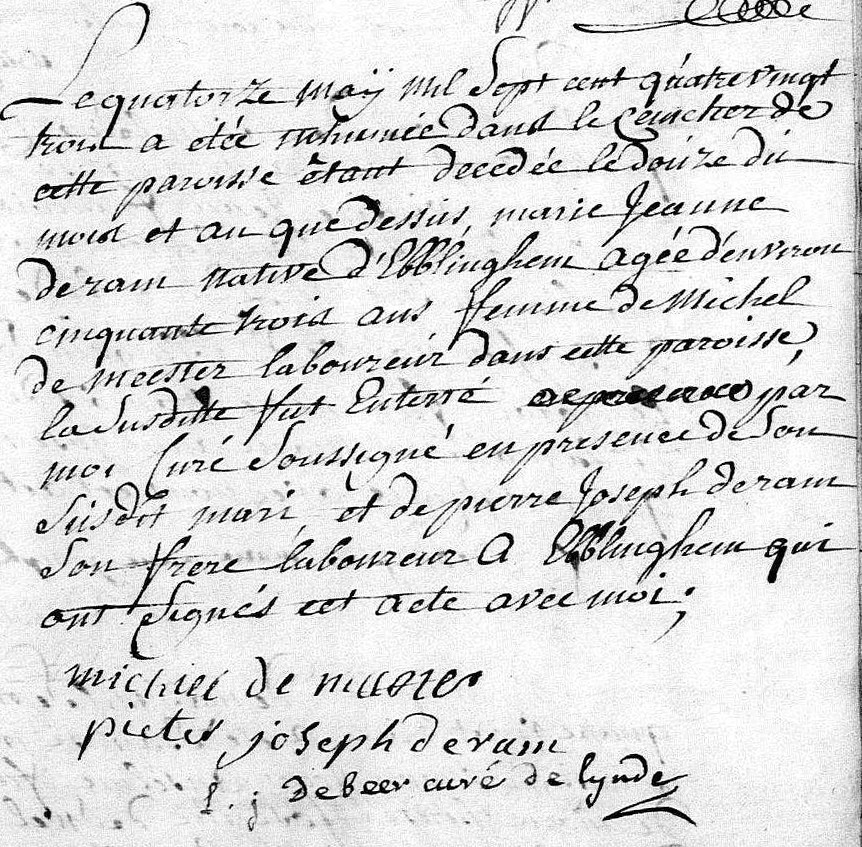 Le quatorze maÿ mil Sept cent quatre vingt
trois a etée inhumée dans le Cémetier de
cette paroisse êtant decedée le douze du
mois et an que dessus, marie Jeanne
deram native d'Ebblinghem agée d'environ
cinquante trois ans femme de Michel
de meester laboureur dans cette paroisse,
la Susditte fut Enterré par
moi Curé Soussigné en presence de Son
Susdit mari, et de pierre Joseph deram
Son frere laboureur A Ebblinghem qui
ont Signés cet acte avec moi;
michiel de meester
pieter joseph deram
j. debeer curé de lynde